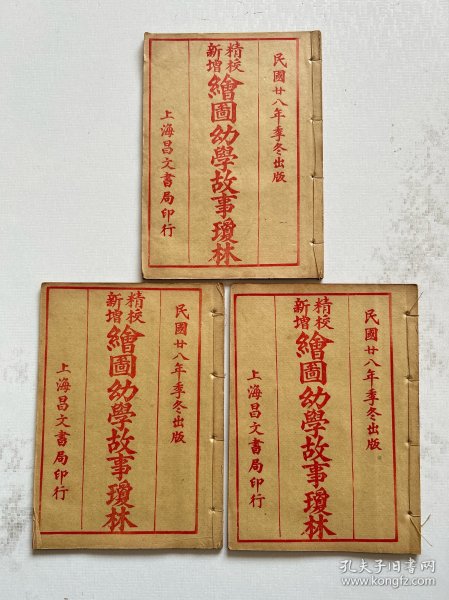 民國廿八年季冬出版
精校
新增
繪圖幼學故事瓊林
上海昌文書局印行
民國廿八年季冬出版
精校
新增
繪圖幼學故事瓊林
上海昌文書局印行
民國廿八年季冬出版
精校
新增
繪圖幼學故事瓊林
上海昌文書局印行
孔夫子旧书网
www.kongfz.com